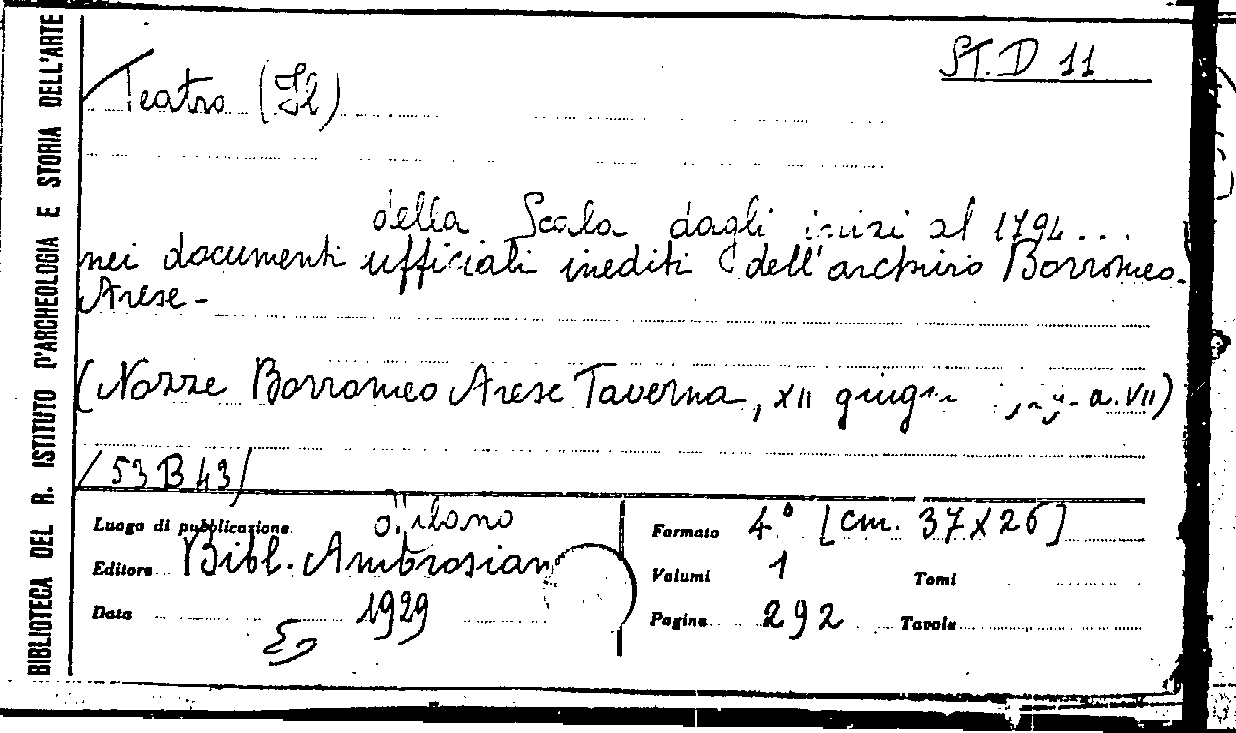 BIBLIOTECA DEL R. ISTITUTO D'ARCHEOLOGIA E STORIA DELL'ARTE
ST. D 11
Teatro (Il)
della Scala dagli inizi al 1794...
nei documenti ufficiali inediti dell'archivio Borromeo
Arese -
(Nozze Borromeo Arese Taverna, XII giugno a. VII)
/53 B 43/
Luogo di pubblicazione Milano
Editore Bibl. Ambrosiana
Data 1929
Formato 4° [cm. 37x26]
Volumi 1 Tomi
Pagine 292 Tavole